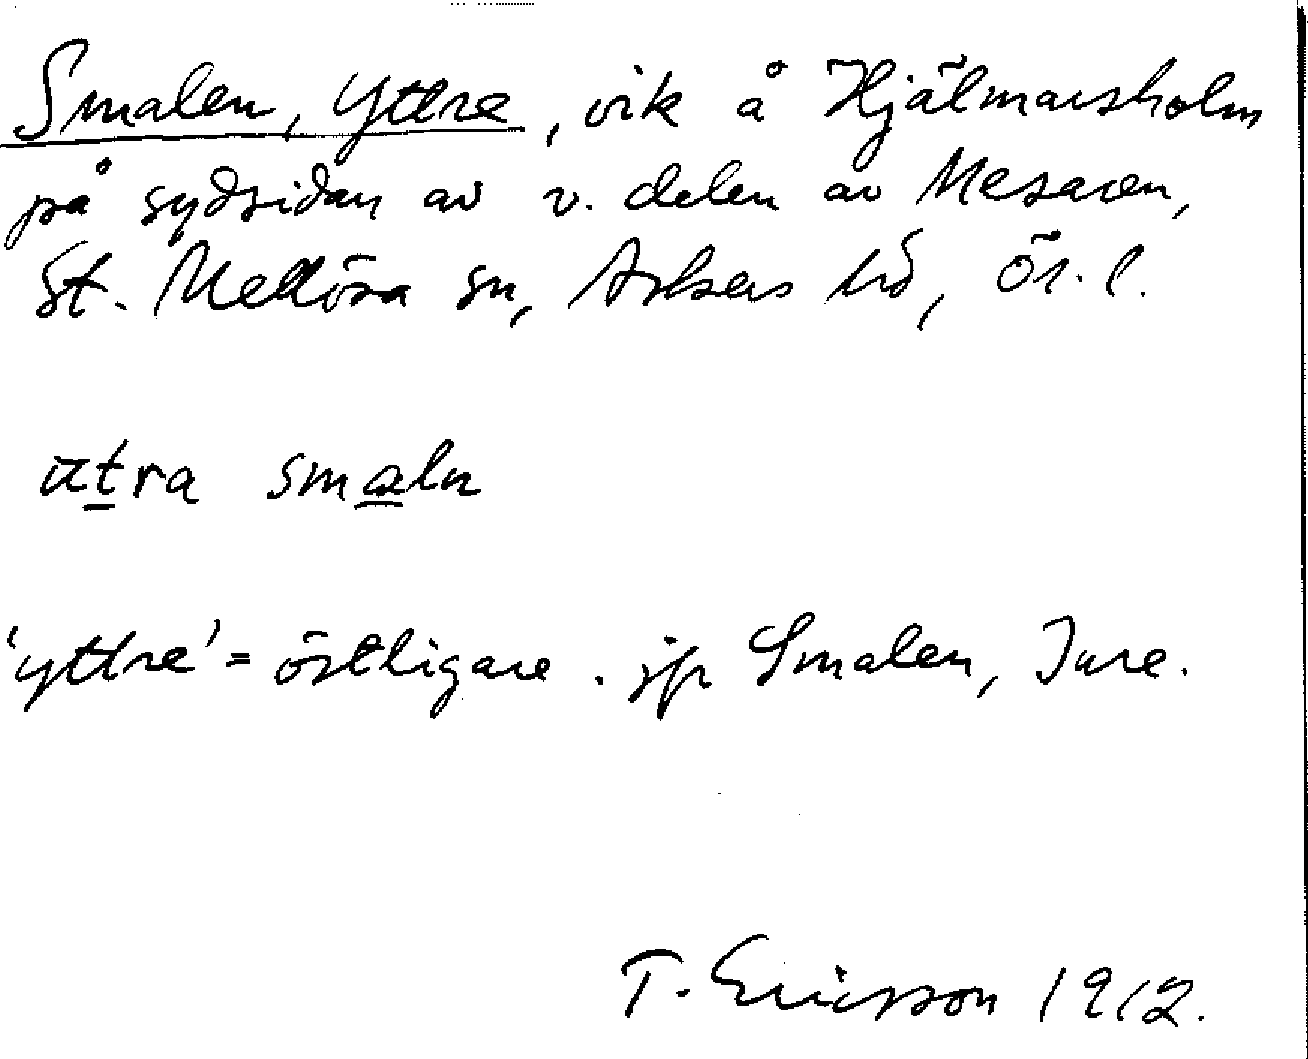 Smalen, Yttre, vik å Hjälmarsholm
på sydsidan av v. delen av Mesaren,
St. Mellösa sn, Askers hd, Ör. l.
utra smaln
'yttre' = östligare. jfr Smalen, Inre.
T. Ericsson 1912.